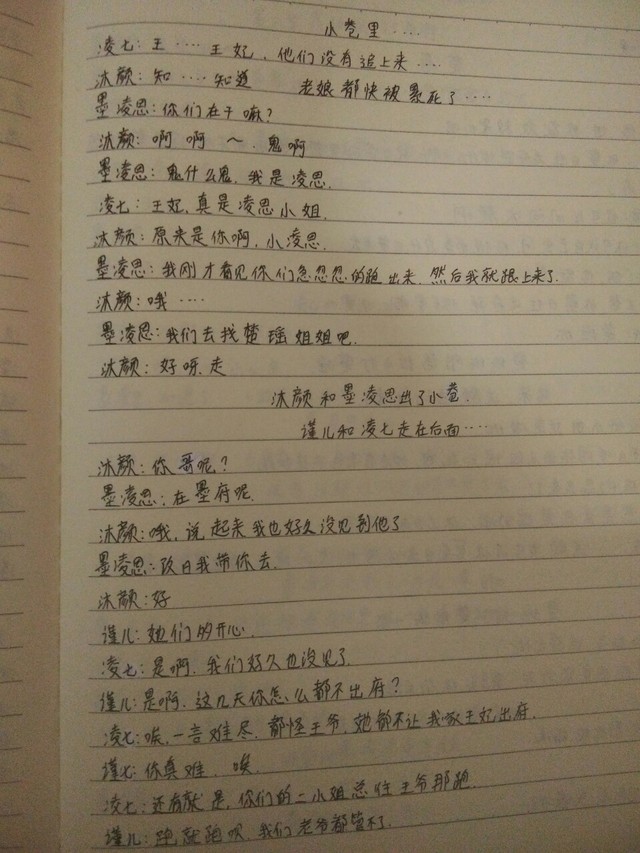 小巷里····
凌七：王····王妃，他们没有追上来····
沐颜：知····知道 老娘都快被累死了····
墨凌思：你们在干嘛？
沐颜：啊啊～.鬼啊
墨凌思：鬼什么鬼.我是凌思.
凌七：王妃.真是凌思小姐.
沐颜：原来是你啊,小凌思.
墨凌思：我刚才看见你们急忽忽的跑出来.然后我就跟上来了.
沐颜：哦····
墨凌思：我们去找楚瑶姐姐吧.
沐颜：好呀.走
沐颜和墨凌思出了小巷.
谨儿和凌七走在后面····
沐颜：你哥呢？
墨凌思：在墨府呢.
沐颜：哦，说起来我也好久没见到他了
墨凌思：改日我带你去.
沐颜：好
谨儿：她们好开心.
凌七：是啊.我们好久也没见了.
谨儿：是啊.这几天你怎么都不出府？
凌七：唉,一言难尽.都怪王爷.她都不让我和王妃出府.
谨七：你真难.唉.
凌七：还有就是,你们的二小姐总往王爷那跑.
谨儿：跑就跑呗.我们老爷都管不了.